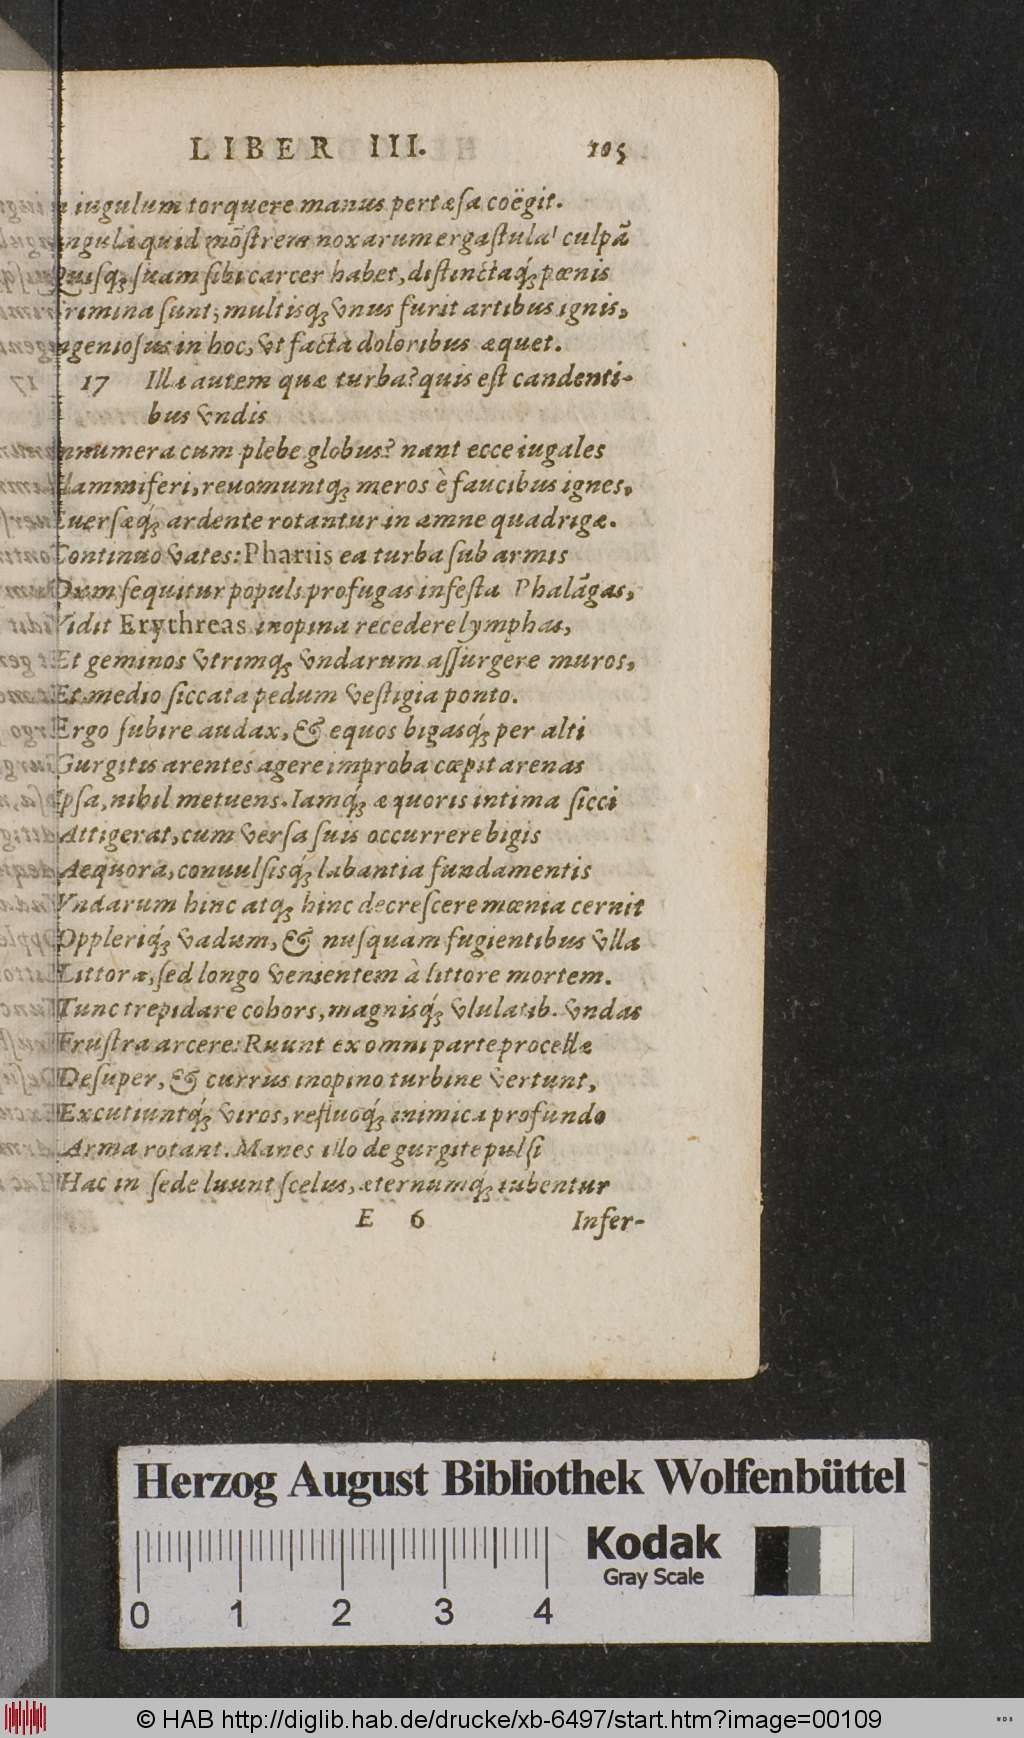 LIBER III. 105
iugulum torquere manus pertæsa coëgit.
quid mõstrem noxarum ergastula! culpã
Quisq; suam sibi carcer habet, distinctaq́; pœnis
Crimina sunt; multisq; vnus furit artibus ignis,
Ingeniosus in hoc, vt facta doloribus æquet.
17 Illa autem quæ turba? quis est candenti-
bus vndis
Innumera cum plebe globus? nant ecce iugales
Flammiferi, reuomuntq; meros è faucibus ignes,
Euersæq́; ardente rotantur in amne quadrigæ.
Continuo vates: Phariis ea turba sub armis
Dum sequitur populi profugas infesta Phalãgas,
Vidit Erythreas inopina recedere lymphas,
Et geminos vtrimq; vndarum assurgere muros,
Et medio siccata pedum vestigia ponto.
Ergo subire audax, & equos bigasq́; per alti
Gurgitis arentes agere improba cœpit arenas
Ipsa, nihil metuens. Iamq́; æquoris intima sicci
Attigerat, cum versa suis occurrere bigis
Aequora, conuulsisq́; labantia fundamentis
Vndarum hinc atq; hinc decrescere mœnia cernit
Oppleriq́; vadum, & nusquam fugientibus vlla
Littora, sed longo venientem à littore mortem.
Tunc trepidare cohors, magnisq́; vlulatib. vndas
Frustra arcere: Ruunt ex omni parte procellæ
Desuper, & currus inopino turbine vertunt,
Excutiuntq́; viros, refluoq́; inimica profundo
Arma rotant. Manes illo de gurgite pulsi
Hac in sede luunt scelus, æternumq; iubentur
E 6 Infer-
Herzog August Bibliothek Wolfenbüttel
Kodak
Gray Scale
0 1 2 3 4
© HAB http://diglib.hab.de/drucke/xb-6497/start.htm?image=00109